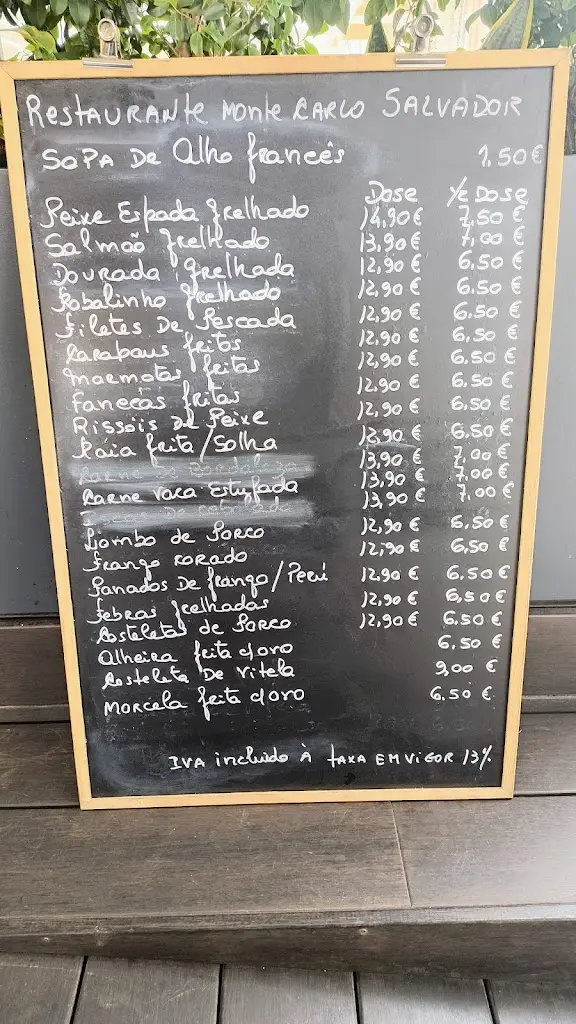 Restaurante Monte Carlo Salvador
Sopa de Alho francês 1.50 €
Dose 1/2 Dose
Peixe Espada grelhado 14,90 € 7,50 €
Salmão grelhado 13,90 € 7,00 €
Dourada grelhada 12,90 € 6.50 €
Robalinho grelhado 12,90 € 6.50 €
Filetes De Pescada 12,90 € 6.50 €
Carapaus fritos 12,90 € 6.50 €
Marmotas fritas 12,90 € 6,50 €
Fanecas fritas 12,90 € 6,50 €
Rissois de Peixe 12,90 € 6,50 €
Raia frita / Solha 12,90 € 6.50 €
Carne Bordaleza 13,90 € 7,00 €
Carne vaca Estufada 13,90 € 7,00 €
de cebolada 13,90 € 7,00 €
Lombo de Porco 12,90 € 6.50 €
Frango corado 12,90 € 6,50 €
Panados De frango / Perú 12,90 € 6,50 €
Febras grelhadas 12,90 € 6,50 €
Costeletas de Porco 12,90 € 6.50 €
Alheira frita c/ovo 6.50 €
Costeleta De Vitela 9,00 €
Morcela frita c/ovo 6.50 €
IVA incluido à taxa em vigor 13%